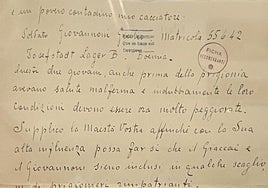 e un povero contadino mio cacciatore:
Soldato Giovannoni Matricola 55042
Josefstadt Lager B - Boemia.
Questi due giovani, anche prima della prigionia
avevano salute malferma e indubbiamente le loro
condizioni devono essere ora molto peggiorate.
Supplico la Maestà Vostra affinchè con la Sua
alta influenza possa far sì che il Graccai e
il Giovannoni sieno inclusi in qualche scaglio
di prigionieri rimpatrianti.